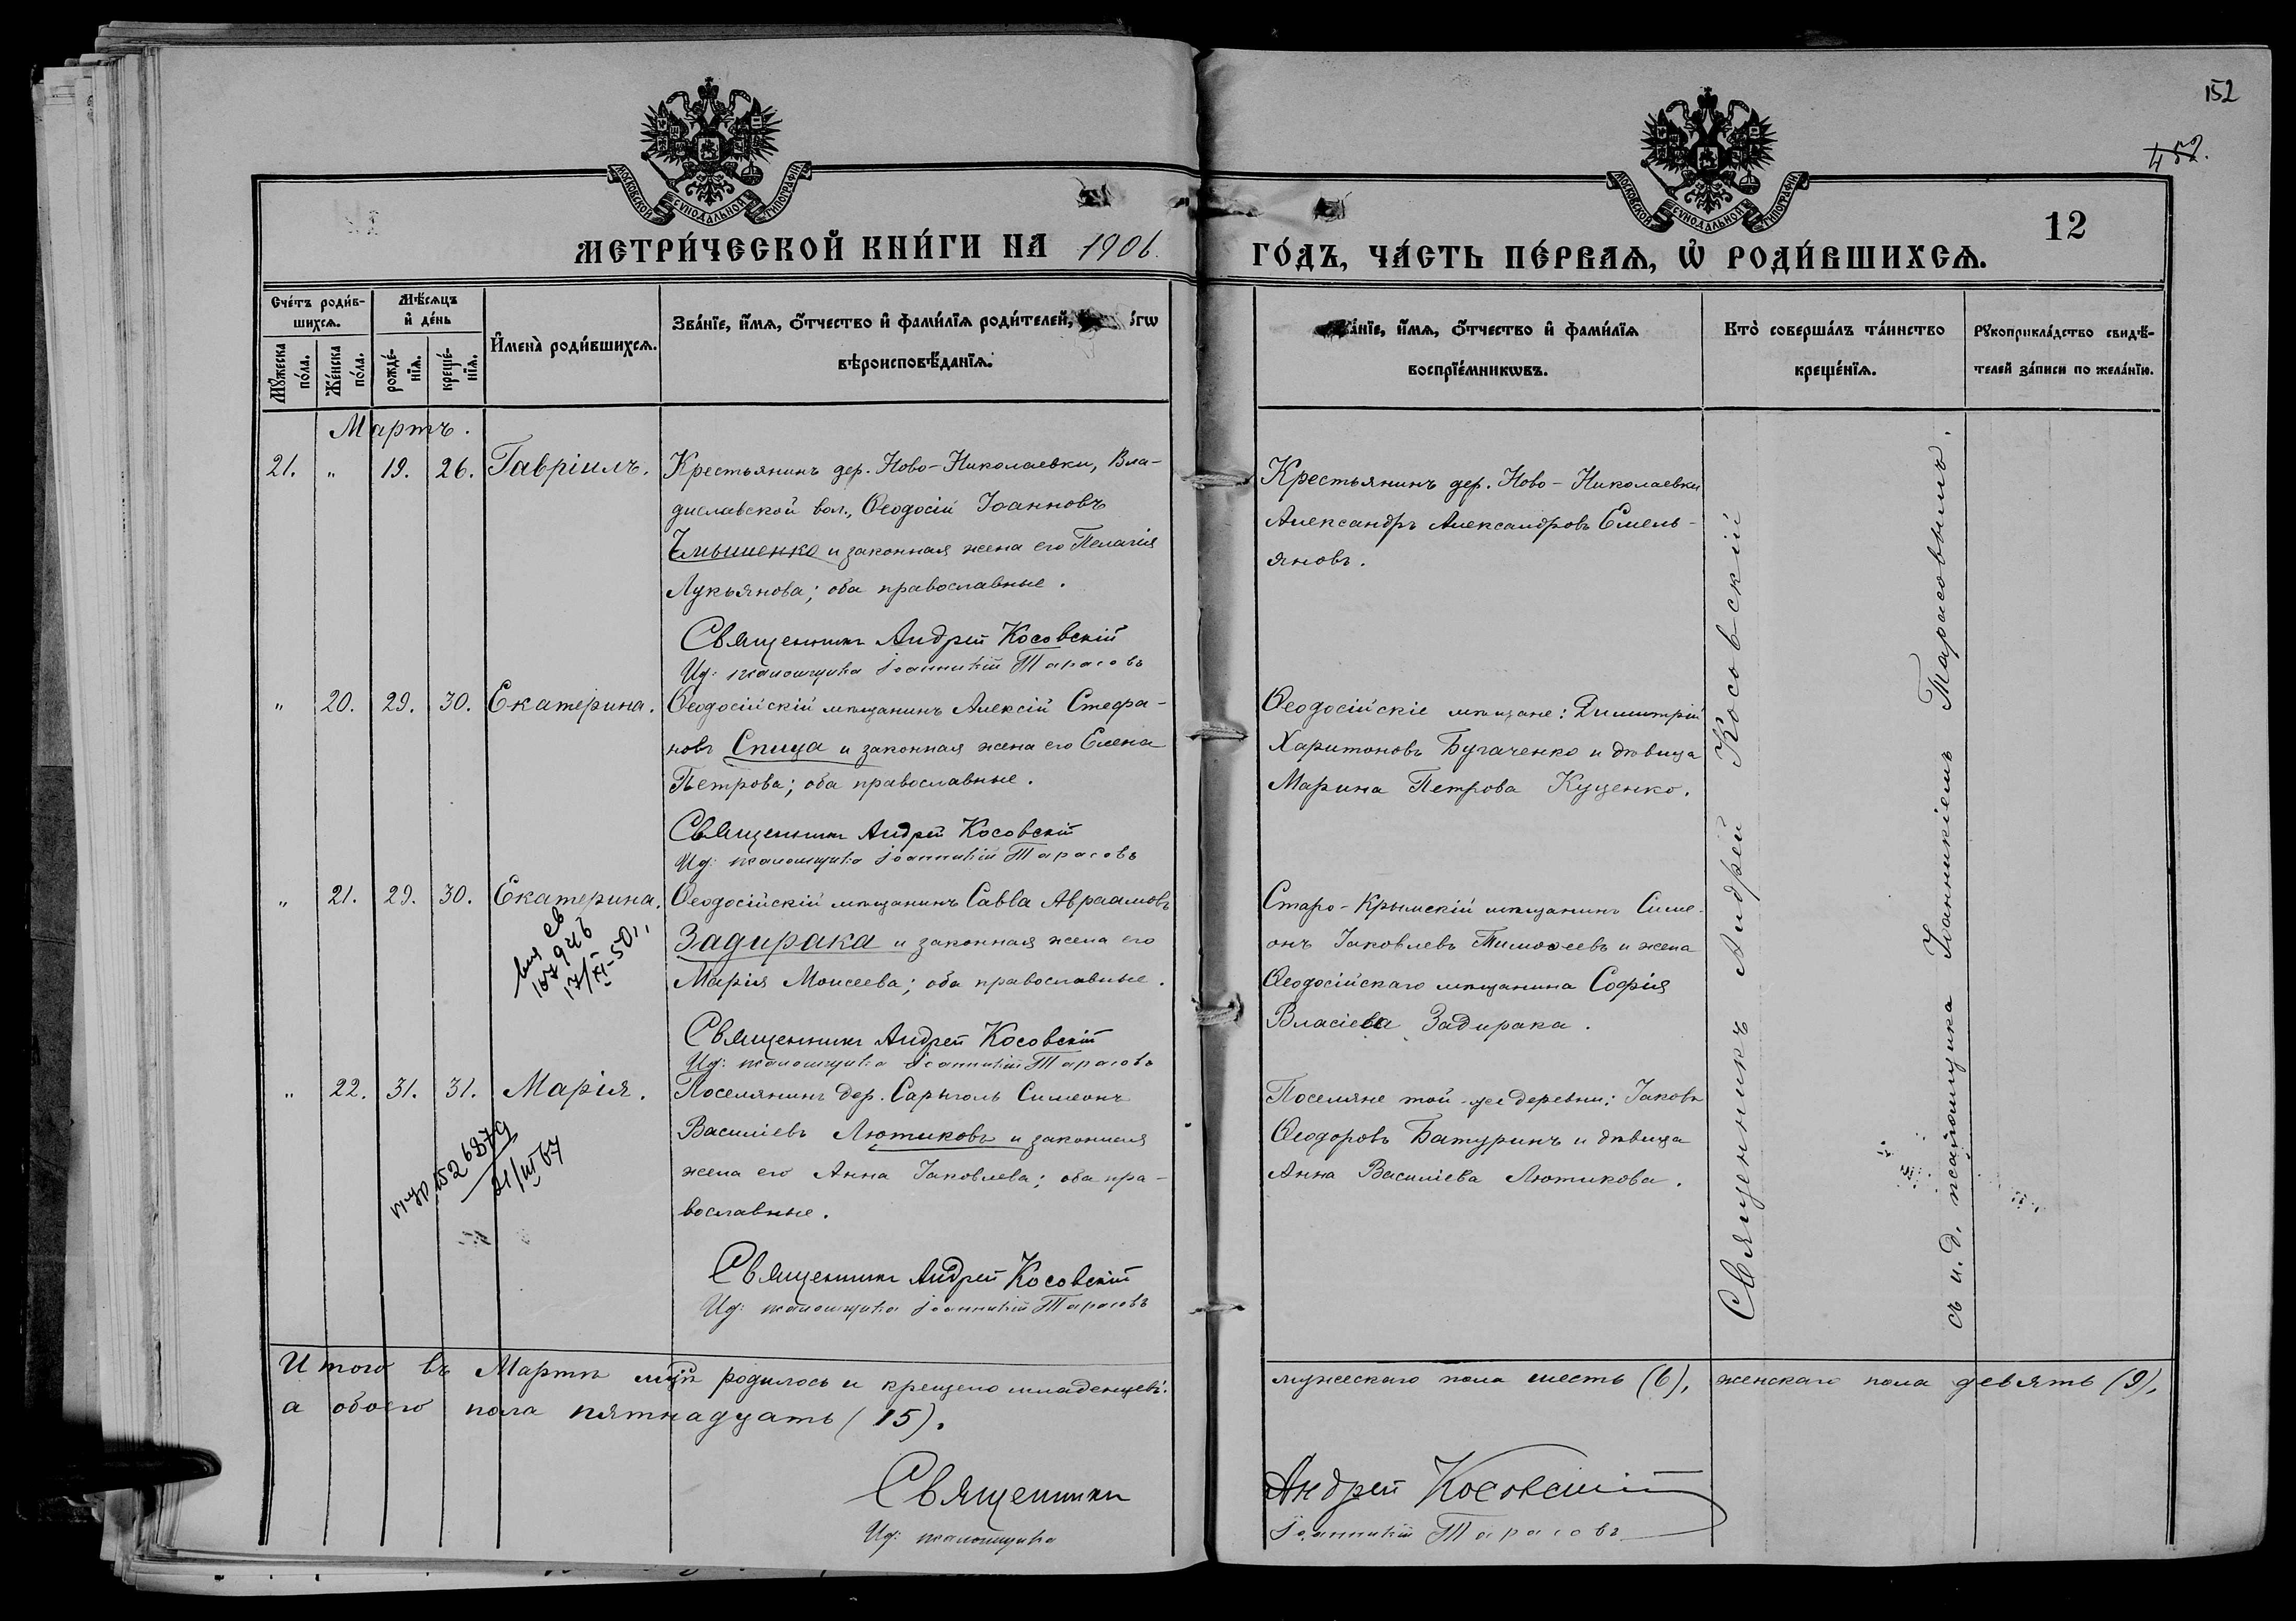 152
452.
МОСКОВСКОЙ СѴНОДАЛЬНОЙ ТИПОГРАФІИ
МОСКОВСКОЙ СѴНОДАЛЬНОЙ ТИПОГРАФІИ
12
МЕТРИ́ЧЕСКОЙ КНИ́ГИ НА 1906.
ГО́ДЪ, ЧА́СТЬ ПЕ́РВАѦ, Ѡ РОДИ́ВШИХСѦ.
Сче́тъ роди́в-
шихсѧ.
Мꙋжеска по́ла.
Же́нска по́ла.
Мѣ́сѧцъ
и де́нь
рожде́-
нїѧ.
креще́-
нїѧ.
Имена̀ роди́вшихсѧ.
Зва́нїе, и́мѧ, о́тчество и фами́лїѧ роди́телей,
вѣроисповѣ́данїѧ.
а́нїе, и́мѧ, о́тчество и фами́лїѧ
воспрїе́мникѡвъ.
Кто̀ соверша́лъ та́инство
креще́нїѧ.
Рꙋкоприкла́дство свидѣ́-
телей за́писи по жела́нїю.
Мартъ.
21. „ 19. 26. Гавріилъ.
Крестьянинъ дер. Ново-Николаевки, Вла-
диславской вол., Ѳеодосій Іоанновъ
и законная жена его Пелагія
Лукьянова; оба православные.
Священникъ Андрей Косовскій
И.д. псаломщика Іоанникій Тарасовъ
Крестьянинъ дер. Ново-Николаевки
Александръ Александровъ Емель-
яновъ.
„ 20. 29. 30. Екатерина.
Ѳеодосійскій мѣщанинъ Алексій Стефа-
новъ Спица и законная жена его Елена
Петрова; оба православные.
Священникъ Андрей Косовскій
И.д. псаломщика Іоанникій Тарасовъ
Ѳеодосійскіе мѣщане: Димитрій
Харитоновъ Бугаченко и дѣвица
Марина Петрова Куценко.
„ 21. 29. 30. Екатерина.
св
107946
17/XI-50 г.
Ѳеодосійскій мѣщанинъ Савва Авраамовъ
Задирака и законная жена его
Марія Моисеева; оба православные.
Священникъ Андрей Косовскій
И.д. псаломщика Іоанникій Тарасовъ
Старо-Крымскій мѣщанинъ Симе-
онъ Іаковлевъ Тимоѳеевъ и жена
Ѳеодосійскаго мѣщанина Софія
Власіева Задирака.
„ 22. 31. 31. Марія.
21/III 67
Поселянинъ дер. Сарыголь Симеонъ
Василіевъ Лютиковъ и законная
жена его Анна Іаковлева; оба пра-
вославные.
Священникъ Андрей Косовскій
И.д. псаломщика Іоанникій Тарасовъ
Поселяне той-же деревни: Іаковъ
Ѳеодоровъ Батуринъ и дѣвица
Анна Василіева Лютикова.
Священникъ Андрей Косовскій
съ и.д. псаломщика Іоанникіемъ Тарасовымъ.
Итого въ Мартѣ мцѣ родилось и крещено младенцевъ:
мужескаго пола шесть (6), женскаго пола девять (9),
а обоего пола пятнадцать (15).
Священникъ Андрей Косовскій
И.д. псаломщика Іоанникій Тарасовъ